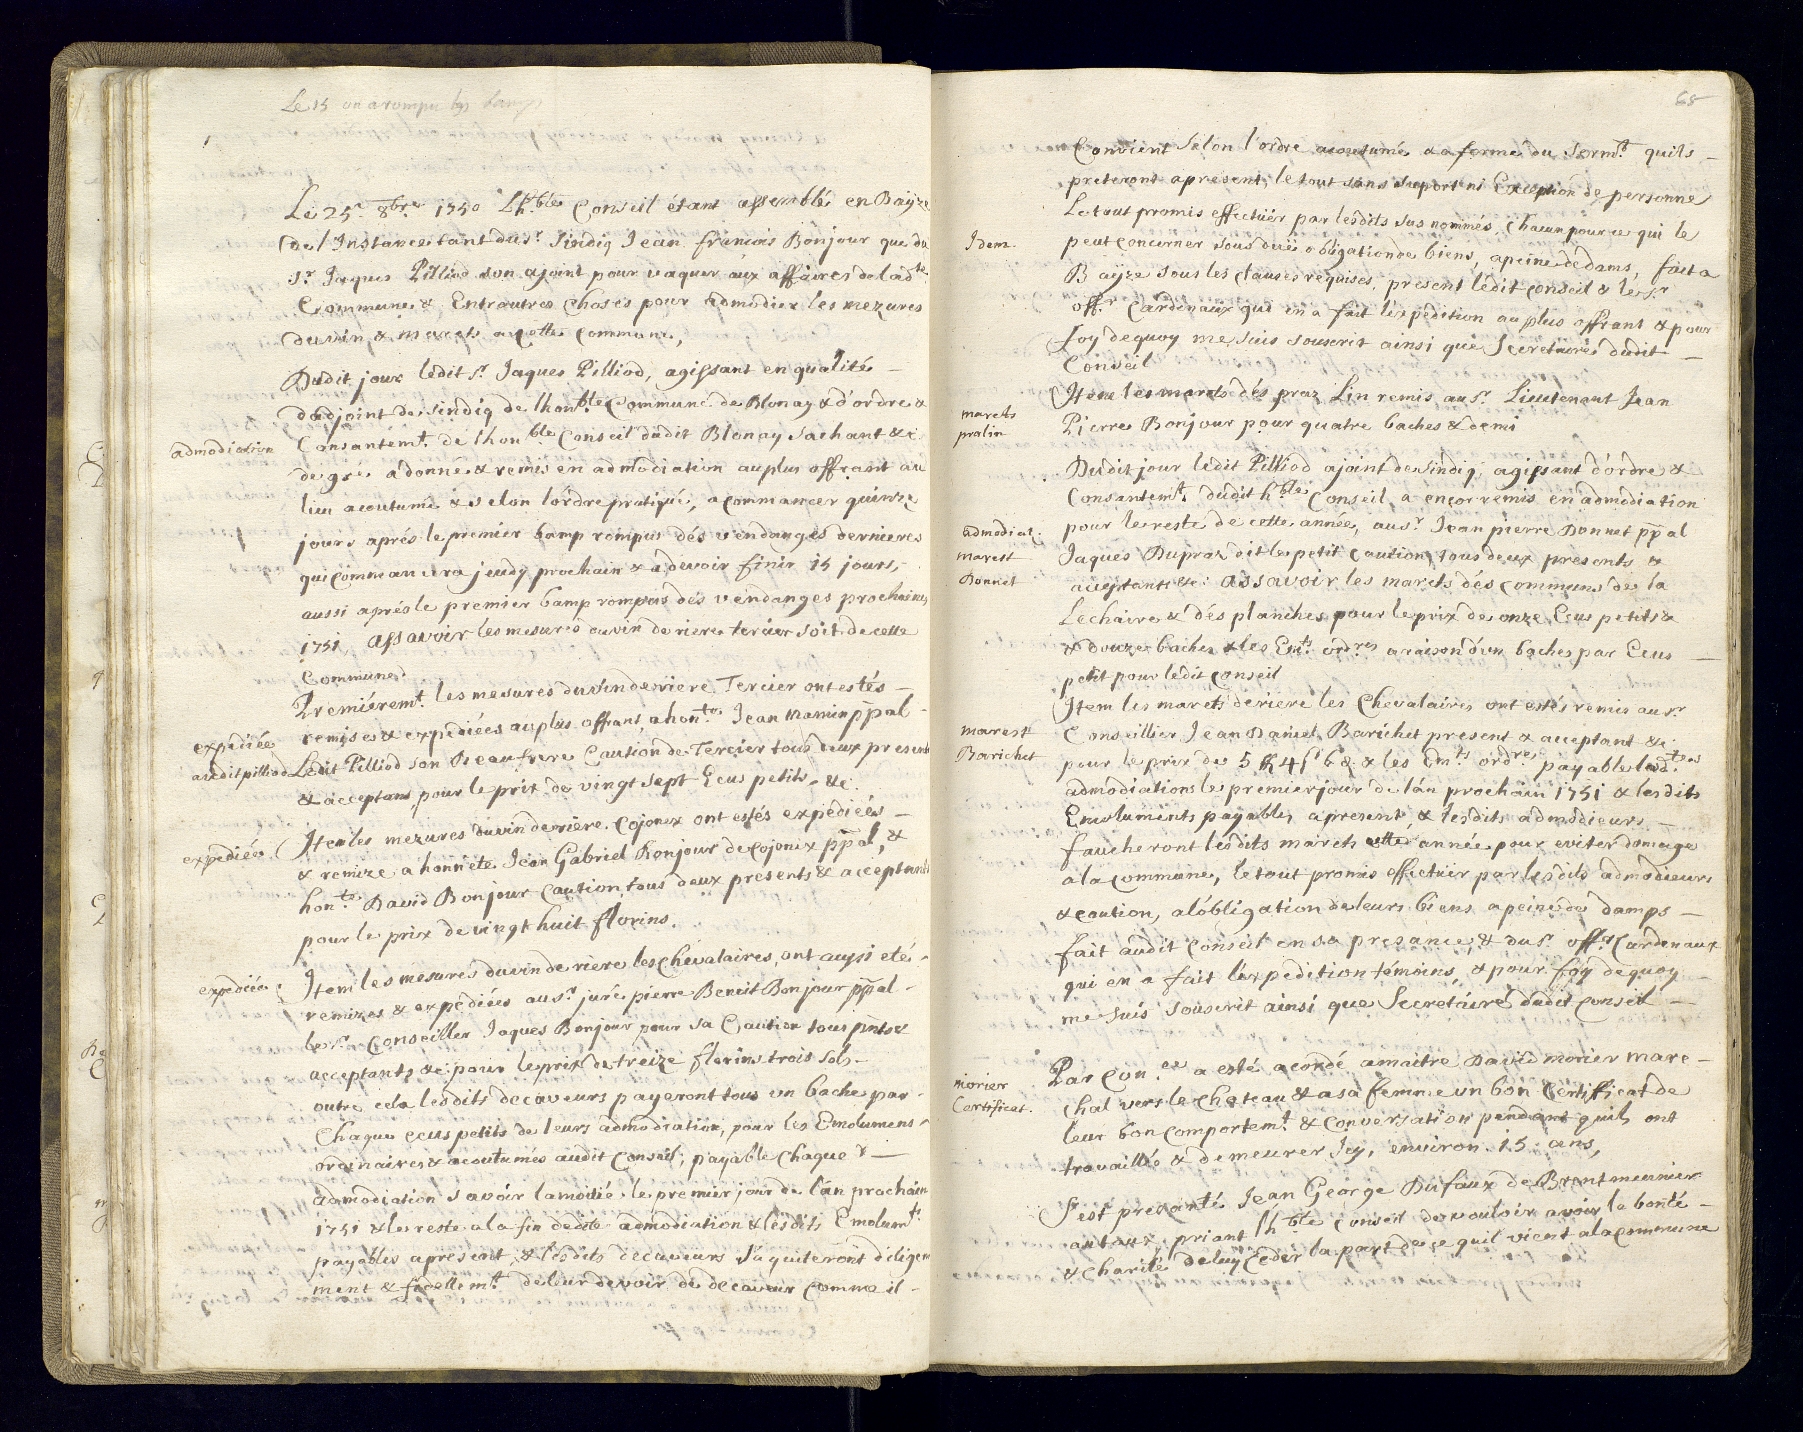 Le 15 on a rompu les bamps
Le 25.e 8bre 1750 Lh.ble Conseil étant assemblé en Bayze
de l'Instance tant du s.r Sindiq Jean francois Bonjour que du
s.r Jaques Pilliod son ajoint pour vaquer aux affaires de lad.te
Commune & Entrautres choses pour admodier les mezures
du vin & marets a cette commune,
Dudit jour ledit s.r Jaques Pilliod, agissant en qualité –
dadjoint de Sindiq de lhon.ble Commune de Blonay & d'ordre &
admodiation
Consantem.t de lhon.ble Conseil dudit Blonay Sachant &c
de gré a donné & remis en admodiation au plus offrant au
lieu acoutumé & selon l'ordre pratiqué, a commancer quinze
jours aprés le premier bamp rompus dés vendanges dernieres
qui commancera jeudy prochain & a devoir finir 15 jours,
aussi aprés le premier bamp rompus des vendanges prochaines
1751, assavoir les mesures du vin de riere tercier soit de cette
Commune
Premiérem.t les mesures du vin de riere Tercier ont estés –
expediée
remises & expediées au plus offrant, a hon.te Jean mamin ppal –
audit pilliod
Ledit Pilliod son Beaufrere Caution de Tercier tous deux presents
& acceptans pour le prix de vingt sept Ecus petits &c
Item les mezures du vin de riere Cojonex ont estés expediées –
expediée
& remize a honnéte Jean Gabriel Bonjour de Cojonex ppal, &
hon.te David Bonjour Caution, tous deux presents & acceptants
pour le prix de vingt huit florins.
Item les mesures du vin de riere les Chevalaires, ont aussi eté –
expediée
remizes & expediées au s.r juré pierre Benoit Bonjour ppal –
le s.r Conseiller Jaques Bonjour pour sa Caution tous pnts &
acceptants &c pour le prix de treize florins trois sols –
outre cela lesdits decaveurs payeront tous un bache par –
Chaque ecus petits de leurs admodiation, pour les Emolumens –
ordinaires & acoutumés audit Conseil; payable chaque –
admodiation savoir la moitié le premier jour de l'an prochain
1751 & le reste a la fin dedite admodiation & lesdits Emolum.ts
payables apresent, & lesdits decaveurs s'aquiteront diligem
ment & fidellem.t de leur devoir de decaveur comme il –
68
Convient selon l'ordre acoutumé & a forme du Serm.t quils –
preteront apresent, le tout sans suport ni Exception de personne
Le tout promis effectüer par lesdits sus nommés, chacun pour ce qui le
Idem.
peut concerner sous düe obligation de biens, a peine de dams, fait a
Bayze sous les clauses requises, présent ledit conseil & le s.r
off.r Cardenaux qui en a fait l'expédition au plus offrant & pour
foy de quoy me suis souscrit ainsi que Secretaire dudit –
Conseil
marets
pralin
Item les marets dés praz Lin remis au s.r Lieutenant Jean
Pierre Bonjour pour quatre baches & demi
Dudit jour ledit Pilliod ajoint de sindiq, agissant d'ordre &
Consantem.t dudit h.ble Conseil, a encor remis en admodiation
admodiat.
marest
Bonnet
pour le reste de cette année, au s.r Jean pierre Bonnet ppal
Jaques Dupraz dit le petit Caution, tous deux presents &
acceptants &c assavoir les marets dés communs de la
Lechaire & dés planches pour le prix de onze Ecus petits &
& douze baches & les Em.ts ord.res a raison d'un baches par Ecus –
petit pour ledit Conseil
Item les marets de riere les Chevalaires ont estés remis au s.r
marest
Barichet
Conseillier Jean Daniel Barichet present & acceptant &c
pour le prix de 5 fl 4 s 6 d & les Em.ts ord.res payable lesd.tes
admodiations le premier jour de l'an prochain 1751 & lesdits
Emoluments payables apresent, & lesdits admodieurs –
faucheront lesdits marets cette année pour eviter domage
a la commune, le tout promis effectüer par lesdits admodieurs
& caution, a lóbligation de leurs biens a peine de damps –
fait audit conseil en sa presance & du s.r off.r Cardenaux
qui en a fait l'expedition témoins, & pour foy de quoy –
me suis souscrit ainsi que Secretaire dudit conseil –
morier
Certificat.
Par Con.ce a esté acordé a maitre David morier mare –
chal vers le Chateau & a sa femme un bon Certificat de
leur bon comportem.t & conversation pendant quils ont
travaillé & demeurer Icy, environ 15 ans,
S'est prezanté Jean George Dufaux de Brent meunier
au baux, priant lh.ble Conseil de vouloir avoir la bonté –
& charité de luy ceder la part de ce quil vient a la commune